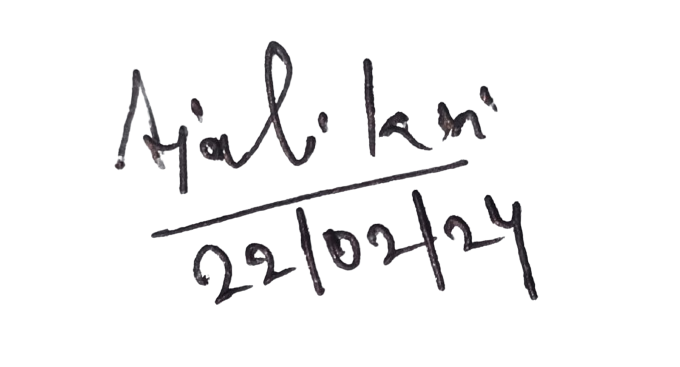 Ajali Kri
22/02/24